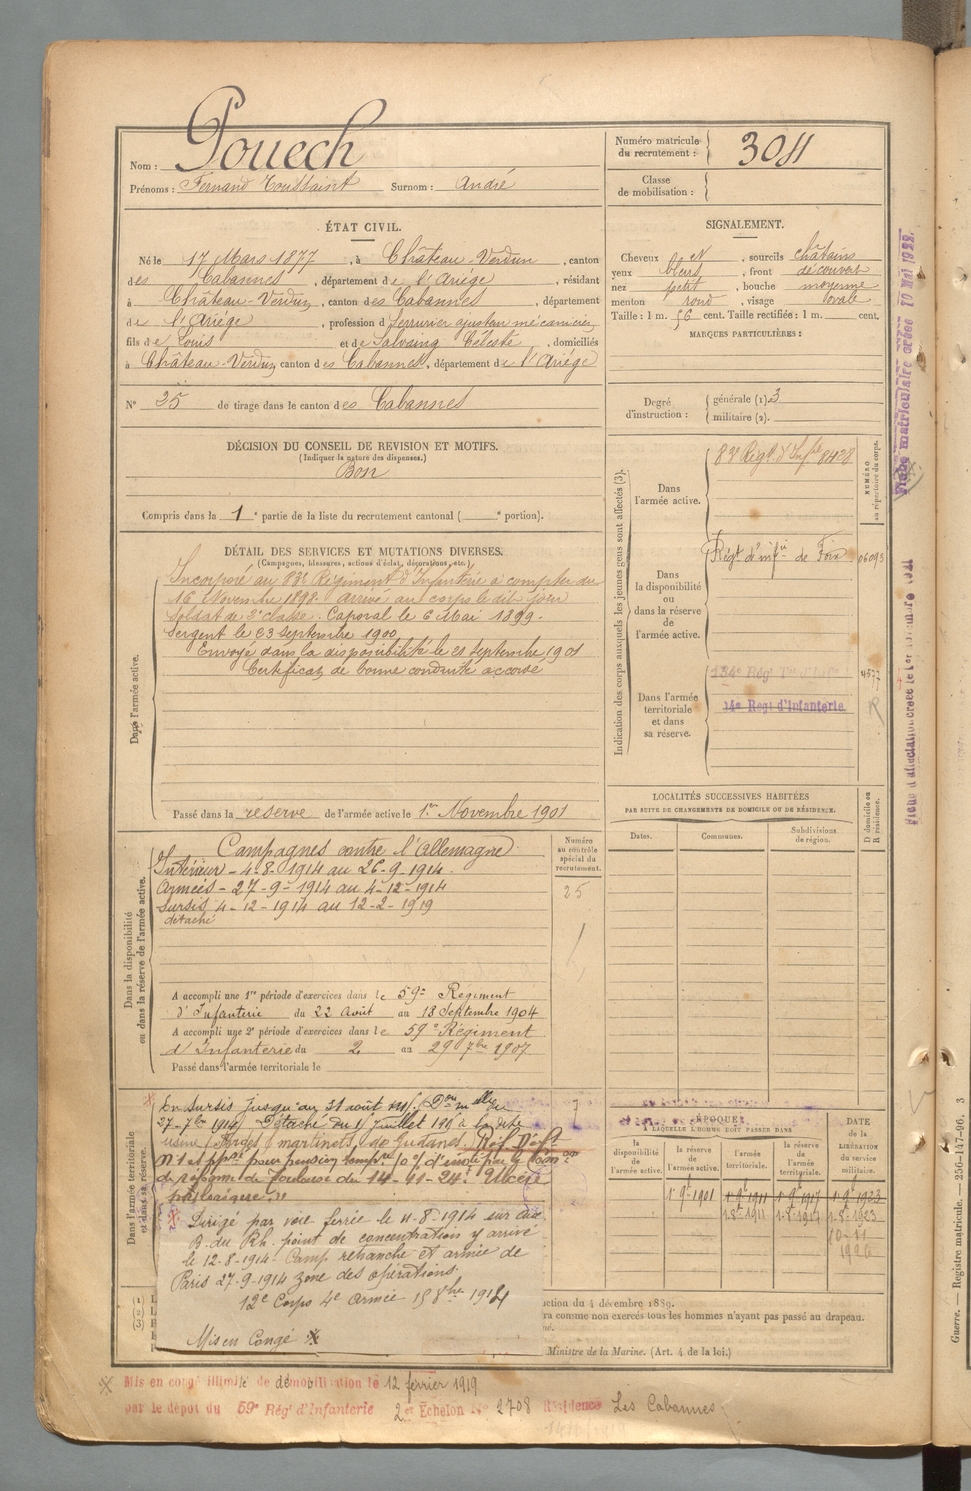 Nom : Pouech
Prénoms : Fernand Toussaint Surnom : André
Numéro matricule du recrutement :
Classe de mobilisation :
ÉTAT CIVIL.
Né le 17 Mars 1877, à Château-Verdun, canton
des Cabannes, département de l'Ariége, résidant
à Château-Verdun, canton des Cabannes, département
de l'Ariége, profession d serrurier ajusteur mécanicien
fils de Louis et de Salvaing Céleste, domiciliés
à Château-Verdun canton des Cabannes, département de l'Ariége
N° 25 de tirage dans le canton des Cabannes
DÉCISION DU CONSEIL DE REVISION ET MOTIFS.
(Indiquer la nature des dispenses.)
Bon
Compris dans la 1e partie de la liste du recrutement cantonal ( e portion).
DÉTAIL DES SERVICES ET MUTATIONS DIVERSES.
(Campagnes, blessures, actions d'éclat, décorations, etc.)
Dans l'armée active.
Incorporé au 83e Régiment d'Infanterie à compter du
16 Novembre 1898. Arrivé au corps le dit jour
Soldat de 2e classe. Caporal le 6 Mai 1899.
Sergent le 23 Septembre 1900.
Envoyé dans la disponibilité le 21 Septembre 1901
Certificat de bonne conduite accordé
Passé dans la réserve de l'armée active le 1er Novembre 1901
Dans la disponibilité ou dans la réserve de l'armée active.
Campagnes contre l'Allemagne
Intérieur - 4-8-1914 au 26-9-1914.
Armées - 27-9-1914 au 4-12-1914
Sursis 4-12-1914 au 12-2-1919
détaché
Numéro au contrôle spécial du recrutement.
25
A accompli une 1re période d'exercices dans le 59e Régiment
d'Infanterie du 22 Août au 18 Septembre 1904
A accompli une 2e période d'exercices dans le 59e Régiment
d'Infanterie du 2 au 29 7bre 1907
Passé dans l'armée territoriale le
Dans l'armée territoriale et dans sa réserve.
En sursis jusqu'au 31 août
27-7bre 1914 Détaché du 1er juillet
usine (Forges) martinets de Gudanes
pour pension temp.re 10%
de réforme de Toulouse du 14-11-24. Ulcère
Dirigé par voie ferrée le 11-8-1914 sur
B. du Rh. point de concentration y arrivé
le 12-8-1914. Camp retranché et armée de
Paris 27-9-1914 zone des opérations.
12e Corps 4e Armée
Mis en Congé
SIGNALEMENT.
Cheveux N, sourcils châtains
yeux bleus, front découvert
nez petit, bouche moyenne
menton rond, visage ovale
Taille : 1 m. 56 cent. Taille rectifiée : 1 m. cent.
MARQUES PARTICULIÈRES :
Degré d'instruction : générale (1). 3
militaire (2).
Indication des corps auxquels les jeunes gens sont affectés (3).
NUMÉRO au répertoire du corps.
Dans l'armée active. 83e Régt d'Infie 8428
Dans la disponibilité ou dans la réserve de l'armée active. Régt d'infie de Foix 06093
Dans l'armée territoriale et dans sa réserve.
134e Régt 4577
14e Régt d'Infanterie
LOCALITÉS SUCCESSIVES HABITÉES
PAR SUITE DE CHANGEMENTS DE DOMICILE OU DE RÉSIDENCE.
Dates. Communes. Subdivisions de région. D domicile ou R résidence.
ÉPOQUE
A LAQUELLE L'HOMME DOIT PASSER DANS
la disponibilité de l'armée active. la réserve de l'armée active. l'armée territoriale. la réserve de l'armée territoriale. DATE de la LIBÉRATION du service militaire.
1-9-1901 1-9-1911 1-9-1917 1-9-1923
1-8-1911 1-8-1917 1-8-1923
ction du 4 décembre 1889.
ra comme non exercés tous les hommes n'ayant pas passé au drapeau.
né.
Ministre de la Marine. (Art. 4 de la loi.)
Mis en congé illimité de démobilisation le 12 février 1919
par le dépôt du 59e Régt d'Infanterie 2e Echelon N° 2708 Résidence Les Cabannes
Fiche matriculaire créée 10 Mai 1922.
Guerre. — Registre matricule. — 256-147-96. 3